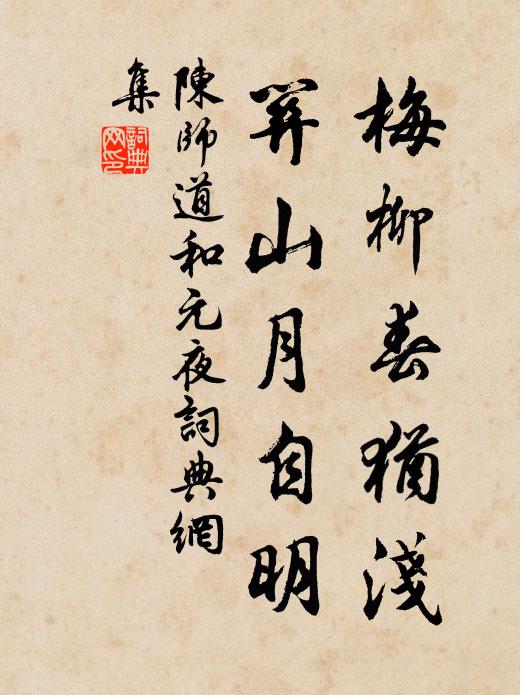 梅柳春猶淺
關山月自明
陳師道和元夜詞典網
集
詞典
网印